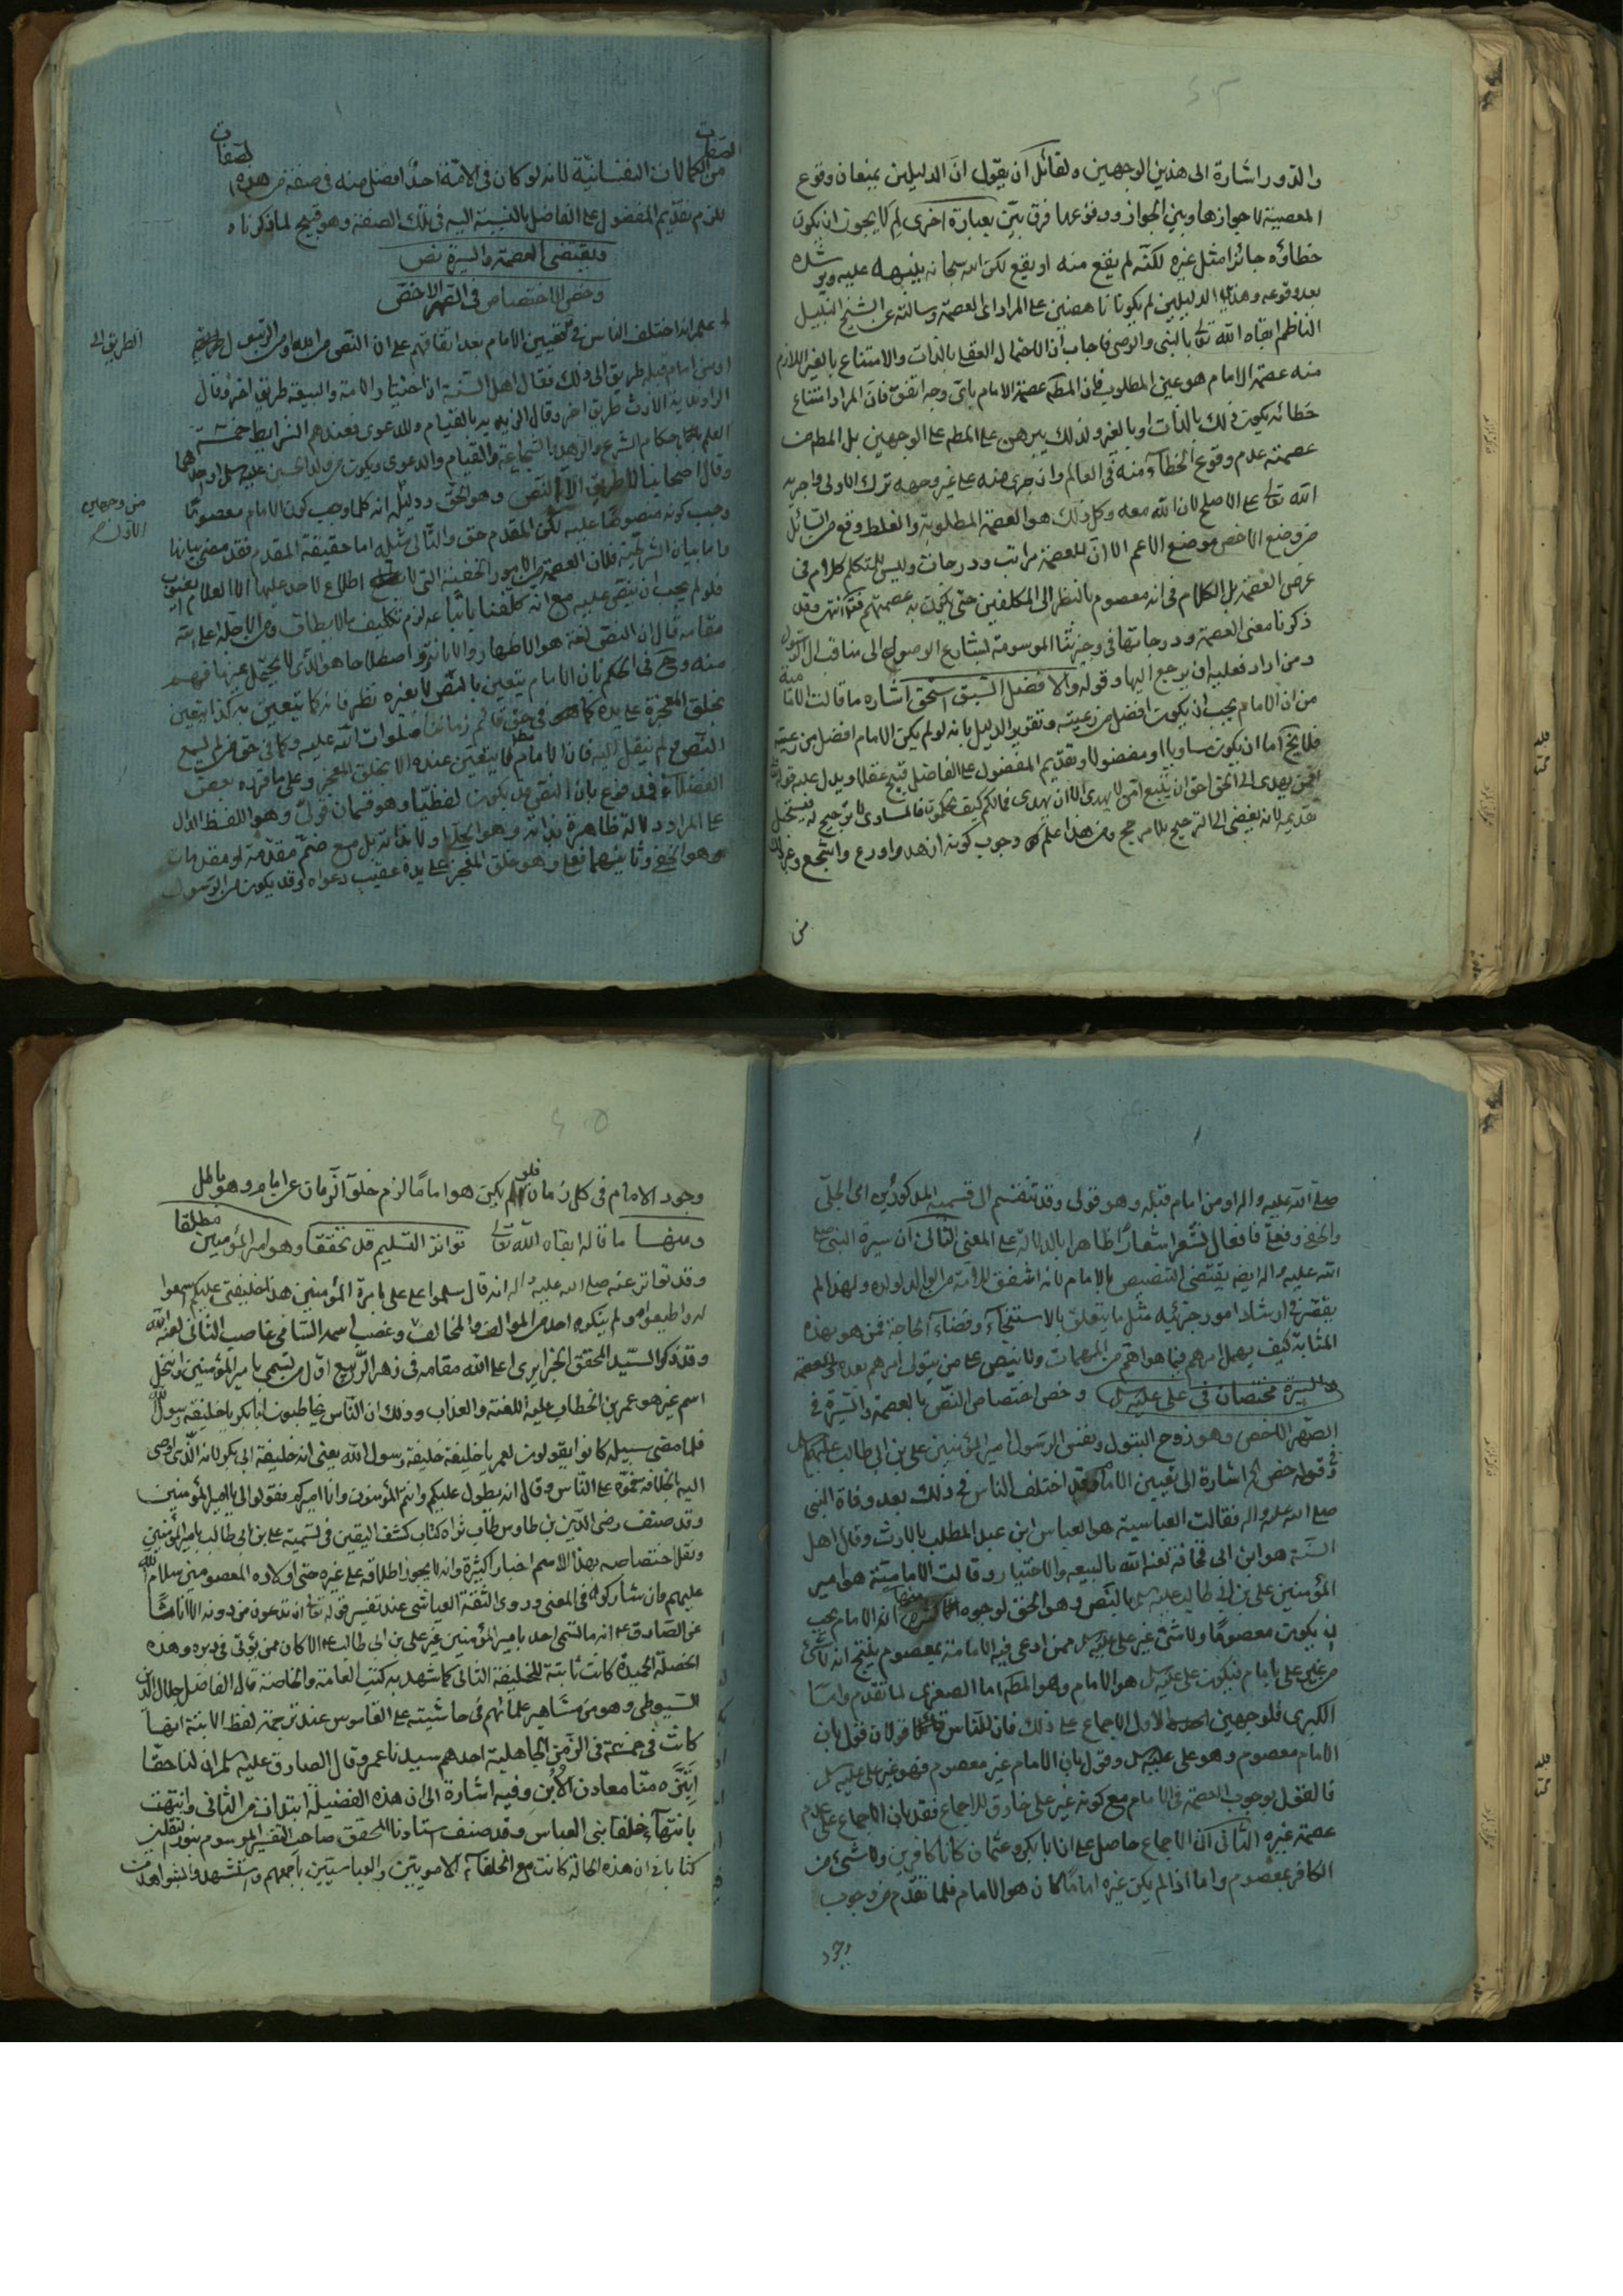 والدور اشارة الى هذين الوجهين ولقائل ان يقول ان الدليلين يمنعان وقوع
المعصية لا جوازها وبين الجواز ووقوعها فرق بيّن بعبارة اخرى لم لا يجوز ان يكون
خطاؤه جائزا مثل غيره لكنه لم يقع منه او يقع لكن الله سبحانه ينبهه عليه ويرشده
بعد وقوعه وهذا الدليلين لم يكونا ناهضين على المراد اى العصمة وسالته عن الشيخ النبيل
الناظم ابقاه الله تعالى بالنبى والوصى فاجاب ان الاحتمال العقلى بالذات والامتناع بالغير اللازم
منه عصمة الامام هو عين المطلوب فان المطم عصمة الامام باى وجه اتفق فان المراد امتناع
خطائه يكون ذلك بالذات او بالغير ولذلك يبرهن على المطم على الوجهين بل المطم من
عصمته عدم وقوع الخطاء منه فى العالم وان جرى منه على غير وجهه ترك الاولى واجرى به
الله تعالى على الاصلح لان الله معه وكل ذلك هو العصمة المطلوبة والغلط وقع من السائل
من وضع الاخص موضع الاعم الا ان للعصمة مراتب ودرجات وليس للمتكلم كلام فى
عرض العصمة بل الكلام فى انه معصوم بالنظر الى المكلفين حتى يكون به عصمتهم فتم انتهى وقد
ذكرنا معنى العصمة ودرجاتها فى وجيزتنا الموسومة لمشارع الوصول الى مناقب ال الرسول
ومن اراد فعليه ان يرجع اليها وقوله والافضل السبق استحق اشاره ما قالت الامامية
من ان الامام يجب ان يكون افضل من رعيته وتقرير الدليل بانه لو لم يكن الامام افضل من رعيته
فلا يخ اما ان يكون مساويا او مفضولا وتقديم المفضول على الفاضل قبيح عقلا ويدل عليه قوله تعالى
افمن يهدى الى الحق احق ان يتبع امن لا يهدى الا ان يهدى فما لكم كيف تحكمون فالمساوى لا ترجيح له فيستحيل
تقديمه لانه يفضى الى الترجيح بلا مرجح ومن هذا علم وجوب كونه ازهد واورع واشجع وغير ذلك
من
من الكمالات النفسانية لانه لو كان فى الامة احد افضل منه فى صفة من هذه
الصفات
يلزم تقديم المفضول على الفاضل بالنسبة اليه فى تلك الصفة وهو قبيح لما ذكرناه
ويقتضى العصمة والسيرة نص
وخص الاختصاص فى الصهر الاخص
اعلم انه اختلف الناس فى تعيين الامام بعد اتفاقهم على ان النص من الله او من الرسول
الطريق الى
او من امام قبله طريق الى ذلك فقال اهل السنة ان اختيار الامة والبيعة طريق اخر وقال
الراوندية الارث طريق اخر وقال الزيدية بالقيام والدعوى فعندهم الشرايط خمسة
العلم باحكام الشرع والزهد والشجاعة والقيام والدعوى ويكون من ولد الحسين عليه سلم او احدهما
وقال اصحابنا لا طريق الا النص وهو الحق ودليله انه كلما وجب كون الامام معصوما
من وجهين
الاول
وجب كونه منصوصا عليه لكن المقدم حق والتالى مثله اما حقيقة المقدم فقد مضى بيانها
واما بيان الشرطية فلان العصمة من الامور الخفية التى لا اطلاع لاحد عليها الا العلام الغيوب
فلو لم يجب ان ينص عليه مع انه كلفنا باتباعه لزم تكليف ما لا يطاق
مقامه قال ان النص لغة هو الاظهار والابانة واصطلاحا هو الذى لا يحتمل غير ما فهم
منه وح فى الحكم بان الامام يتعين بالنص لا بغيره نظر فانه كما يتعين به كذا يتعين
بخلق المعجزة على يده كما فى حق قائم زماننا صلوات الله عليه وكما فى حق من لم يسمع
النص ولم ينقل اليه فان الامام لا يتعين عنده الا بخلق المعجز وعلى ما قرره بعض
الفضلاء قد فوع بان النص قد يكون لفظيا وهو قسمان قولى وهو اللفظ الدال
على المراد دلالة ظاهرة بذاته وهو الجلى او لا بذاته بل مع ضم مقدمة او مقدمات
وهو الخفى وثانيهما فعلى وهو خلق المعجز على يده عقيب دعواه وقد يكون من الرسول
صلى الله عليه واله او من امام قبله وهو قولى وقد تنقسم الى قسميه المذكورين اى الجلى
والخفى وفعلى فافعال تشعر اشعارا ظاهرا بالدلالة على المعنى الثانى ان سيرة النبى صلى
الله عليه واله ايضه يقتضى التنصيص بالامام لانه اشفق للامة من الوالد لولده ولهذا لم
يقصر فى ارشاد امور جزئيه مثل ما يتعلق بالاستنجاء وقضاء الحاجة فمن هو بهذه
المثابة كيف يهمل امرهم فيما هو اهم من المهمات ولا ينص على من يتولى امرهم بعده والعصمة
والسيرة مختصان فى على عليه سلم وخص اختصاص النص بالعصمة والسيرة فى
الصهر الاخص وهو زوج البتول ونفس الرسول امير المؤمنين على بن ابى طالب عليهم سلم
وقوله خص الخ اشارة الى تعيين الامام وقد اختلف الناس فى ذلك بعد وفاة النبى
صلى الله عليه واله فقالت العباسية هو العباس ابن عبد المطلب بالارث وقال اهل
السنة هو ابن ابى قحافة لعنه الله بالبيعه والاختيار وقالت الامامية هو امير
المؤمنين على بن ابى طالب عليه سلم بالنص وهو الحق لوجوه منها انه الامام يجب
ان يكون معصوما ولا شئ غير على عليه سلم ممن ادعى فيه الامامة بمعصوم ينتج انه لا شئ
من غير على بامام فيكون على عليه سلم هو الامام وهو المطم اما الصغرى لما تقدم واما
الكبرى فلوجهين الاول الاجماع على ذلك فان للناس قولان قول بان
الامام معصوم وهو على عليه سلم وقول بان الامام غير معصوم فهو غير على عليه سلم
فالقول بوجوب العصمة فى الامام مع كونه غير على خارق للاجماع فقد بان الاجماع على عدم
عصمة غيره الثانى ان الاجماع حاصل على ان ابا بكر وعثمان كانا كافرين ولا شئ من
الكافر بمعصوم واما اذا لم يكن غيره اماما كان هو الامام فلما تقدم من وجوب
وجود
وجود الامام فى كل زمان فلو لم يكن هو اماما لزم خلو الزمان عن امام وهو باطل
ومنها ما قاله ابقاه الله تعالى تواتر التسليم قد تحققا وهو امير المؤمنين مطلقا
وقد تواتر عنه صلى الله عليه واله انه قال سلموا على على بامرة المؤمنين هذا خليفتى عليكم اسمعوا
له واطيعوا ولم ينكره احد من الموالف والمخالف وغصب اسمه السامى غاصب الثانى لعنه الله
وقد ذكر السيد المحقق الجزايرى اعلى الله مقامه فى زهر الربيع اول من تسمى بامير المؤمنين وانتحل
اسم غيره هو عمر بن الخطاب عليه اللعنة والعذاب وذلك ان الناس يخاطبون ابا بكر يا خليفة رسول الله
فلما مضى سبيله كانوا يقولون لعمر يا خليفة خليفة رسول الله يعنى انه خليفة ابى بكر لانه الذى اوصى
اليه بالخلافة على الناس وقال انه يطول عليكم وانتم المؤمنون وانا اميركم فقولوا لى يا امير المؤمنين
وقد صنف رضى الدين بن طاوس طاب ثراه كتاب كشف اليقين فى تسمية على بن ابى طالب بامير المؤمنين
ونقل اختصاصه بهذا الاسم اخبارا كثيرة وانه لا يجوز اطلاقه على غيره حتى اولاده المعصومين سلام الله
عليهم وان شاركوه فى المعنى وروى الثقة العياشى عند تفسير قوله تعالى ان تدعون من دونه الا اناثا
عن الصادق ع انه ما تسمى احد بامير المؤمنين غير على بن ابى طالب ع الا كان ممن يؤتى فى دبره وهذه
الخصلة الحميدة كانت ثابتة للخليفة الثانى كما شهد به كتب العامة والخاصة قال الفاضل جلال الدين
السيوطى وهو من مشاهير علمائهم فى حاشيته على القاموس عند ترجمة لفظ الابنة انها
كانت فى خمسة فى الزمن الجاهلية احدهم سيدنا عمر وقال الصادق عليه سلم ان لنا حقا
ابتزه منا معادن الابن وفيه اشارة الى ان هذه الفضيلة ابتدات من الثانى وانتهت
بانتهاء خلفا بنى العباس وقد صنف استادنا المحقق صاحب التفسير الموسوم بنور الثقلين
كتابا فى ان هذه الحالة كانت مع الخلفاء الامويين والعباسيين باجمعهم واستشهد